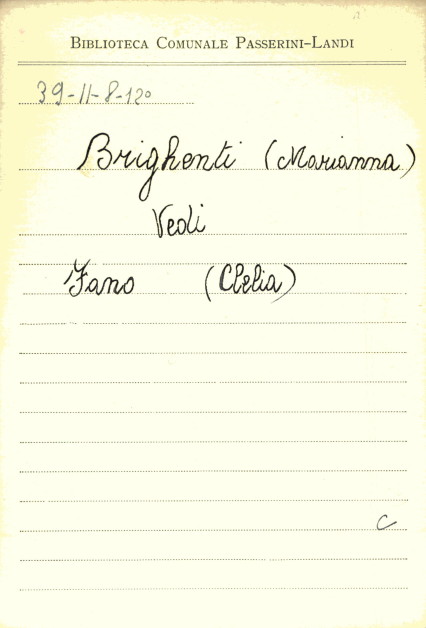 BIBLIOTECA COMUNALE PASSERINI-LANDI
39-11-8-12°
Brighenti (Marianna)
Vedi
Fano (Clelia)
C